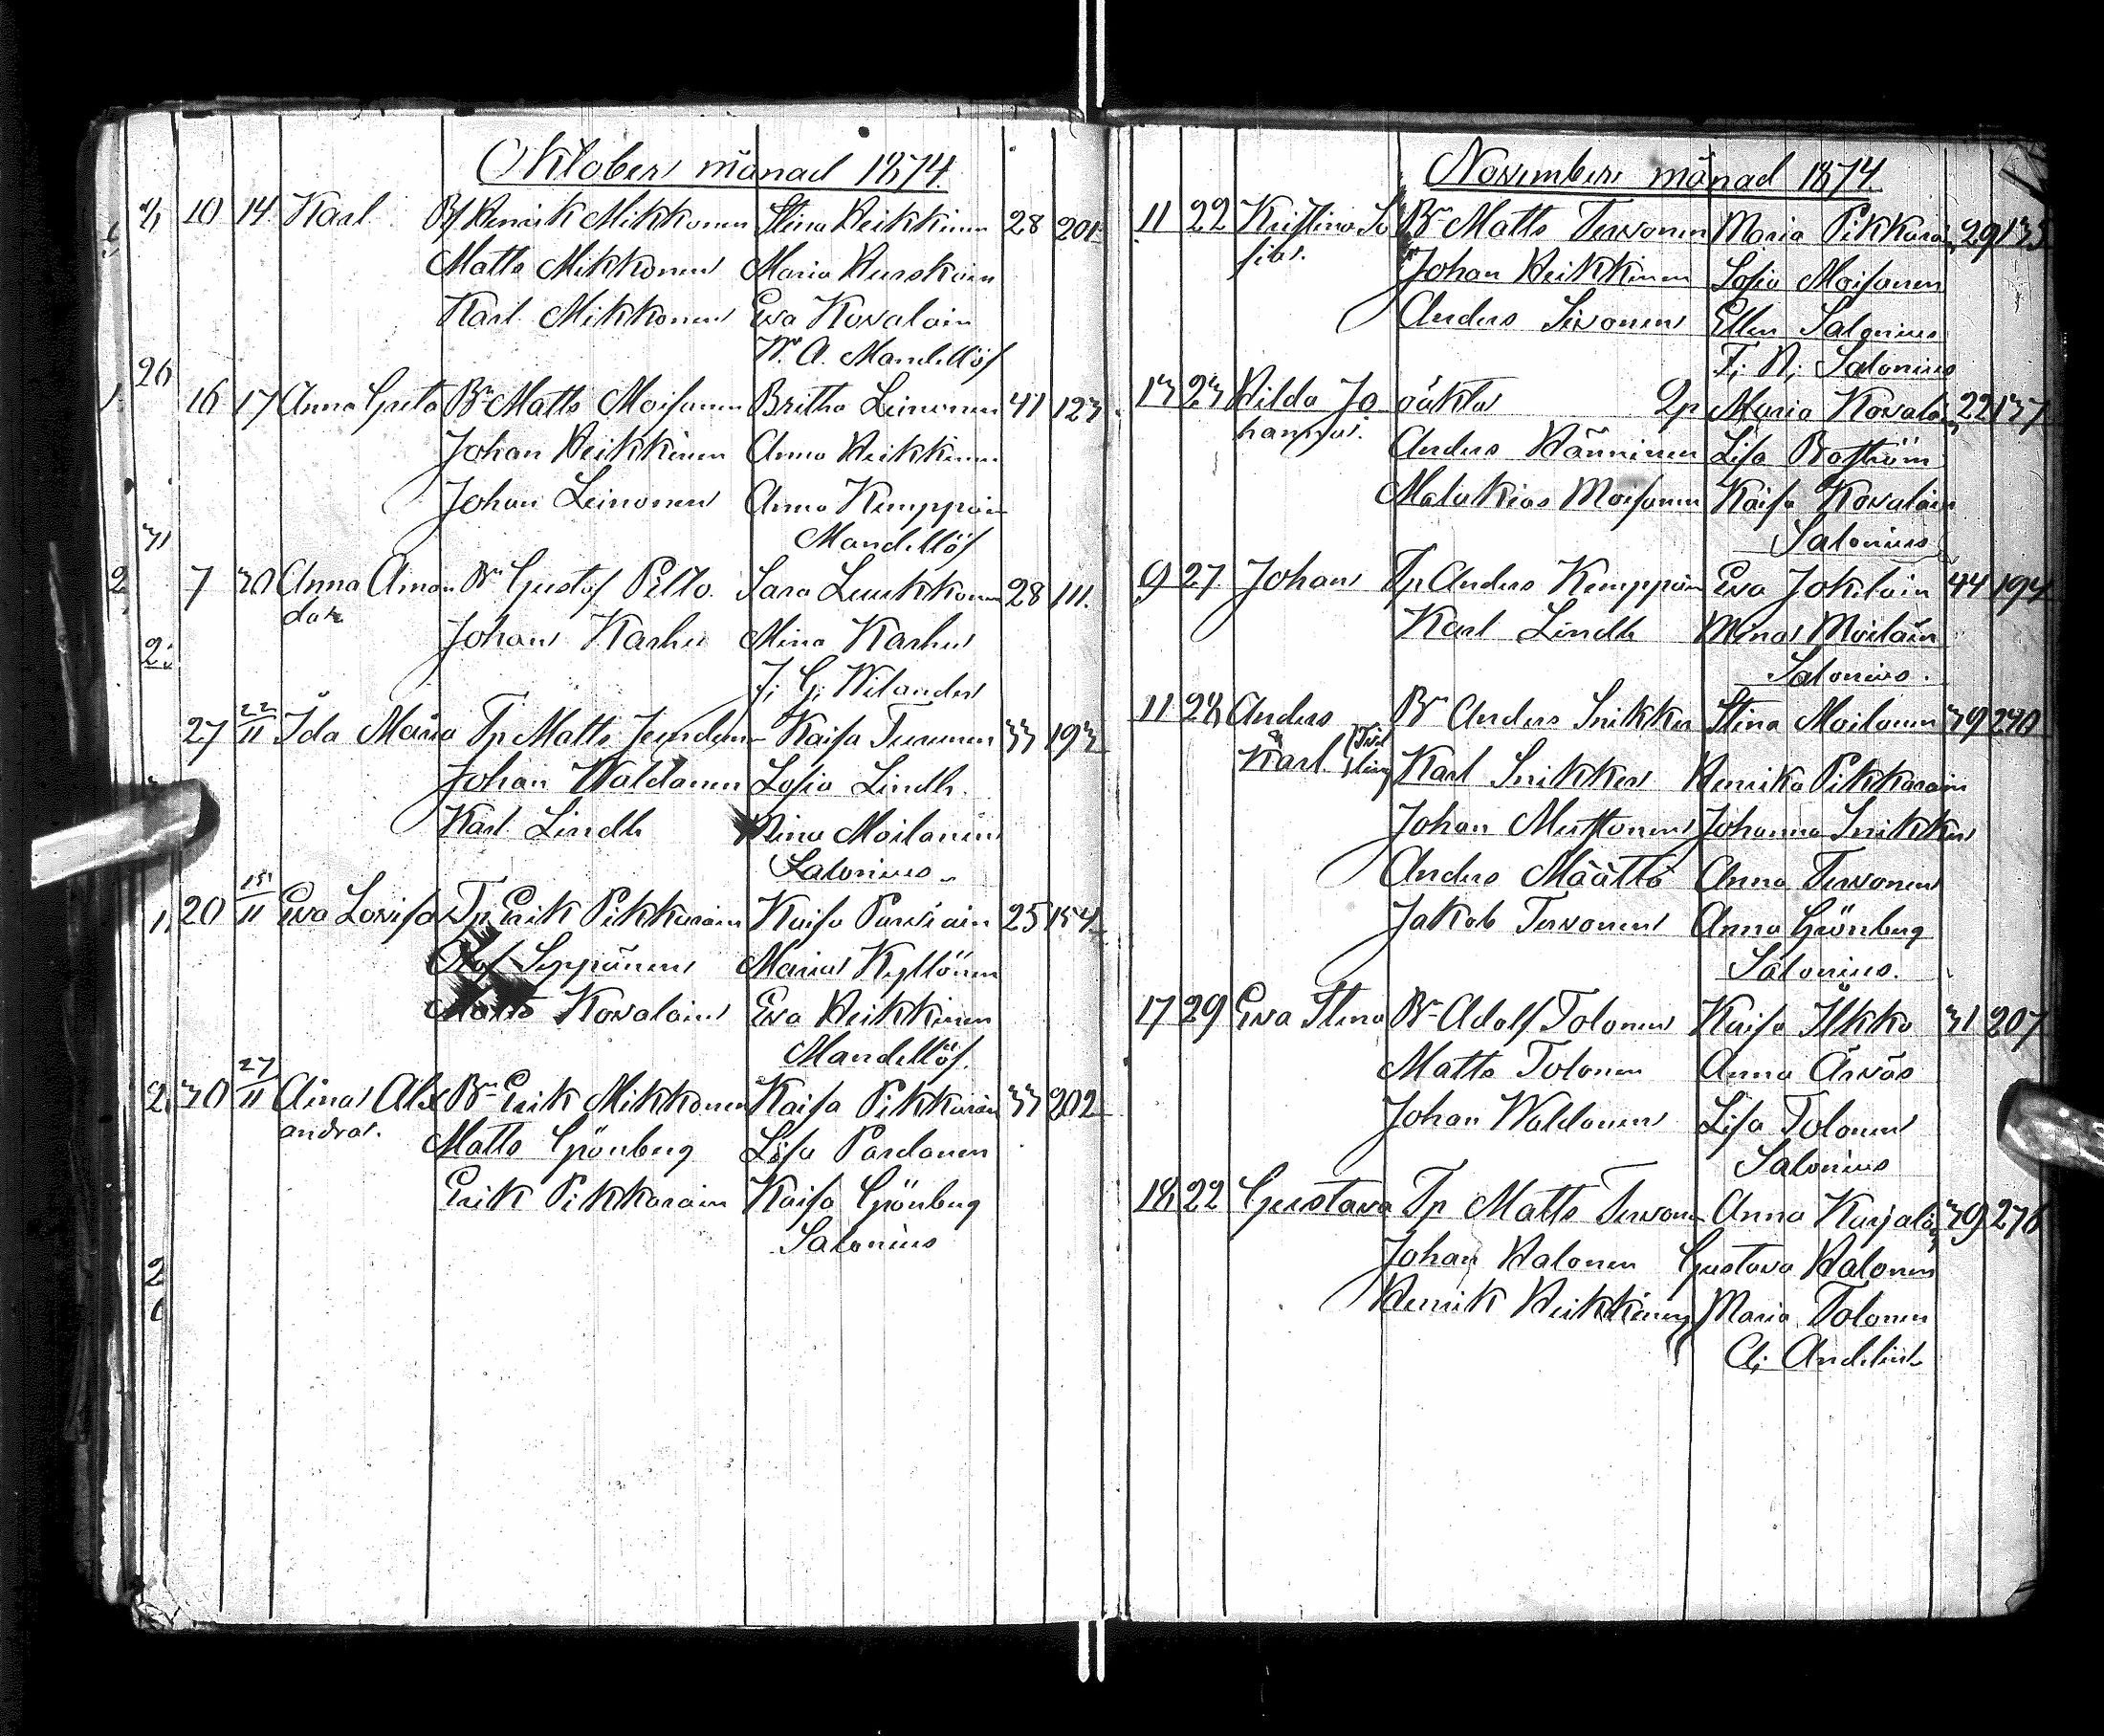 Oktober månad 1874.
10 14. Karl Bf Henrik Mikkonen Stina Heikkinen 28 201
Matts Mikkonen Maria Hurskain
Karl Mikkonen Eva Kovalain
W. A. Mandellöf
16 17 Anna Greta Br Matts Moisanen Britha Leinonen 41 123
Johan Heikkinen Anna Heikkinen
Johan Leinonen Anna Kemppain
Mandellöf
7 30 Anna Aman Br Gustaf Pelto. Sara Luukkonen 28 111.
da
Johan Karhu Mina Karhu
J. G. Wilander
27 22/11 Ida Maria Tp Matts Kaisa Turunen 33 193
Johan Waldanen Sofia Lindh.
Karl Lindh Stina Moilanen
Salonius
20 15/11 Eva Lovisa Tp Erik Pikkarain Kaisa Parviain 25 154
Olof Seppänen Maria Kyllönen
Matts Kovalain Eva Heikkinen
Mandellöf.
30 27/11 Aina Alex Br Erik Mikkonen Kaisa Pikkarain 33 202
andra.
Matts Grönberg Lisa Pardanen
Erik Pikkarain Kaisa Grönberg
Salonius
November månad 1874.
11 22 Kristina So Br Matts Tervonen Maria Pikkarain 29 135
fia.
Johan Heikkinen Sofia Moisanen
Anders Sivonen Ellen Salonius
F. N. Salonius
13 23 Hilda Jo oäkta Qp Maria Kovalain 22 137
hanna.
Anders Hänninen Lisa Boström
Malakias Moisanen Kaisa Kovalain
Salonius
9 27. Johan Tp Anders Kemppain Eva Jokelain 44 194
Karl Lindh Mina Moilain
Salonius.
11 28 Anders Br Anders Snikker Stina Moilanen 39 240
& Karl. Tvil
ling
Karl Snikker Henrika Pikkarain
Johan Mustonen Johanna Snikker
Anders Määttä Anna Tervonen
Jakob Tervonen Anna Grönberg
Salonius.
17 29 Eva Stina Br Adolf Tolonen Kaisa Ilkko 31 207
Matts Tolonen Anna Arvas
Johan Waldanen Lisa Tolonen
Salonius
18 22 Gustava Tp Matts Tervonen Anna Karjalain 39 276
Johan Halonen Gustava Halonen
Henrik Heikkinen Maria Tolonen
A. Andelin